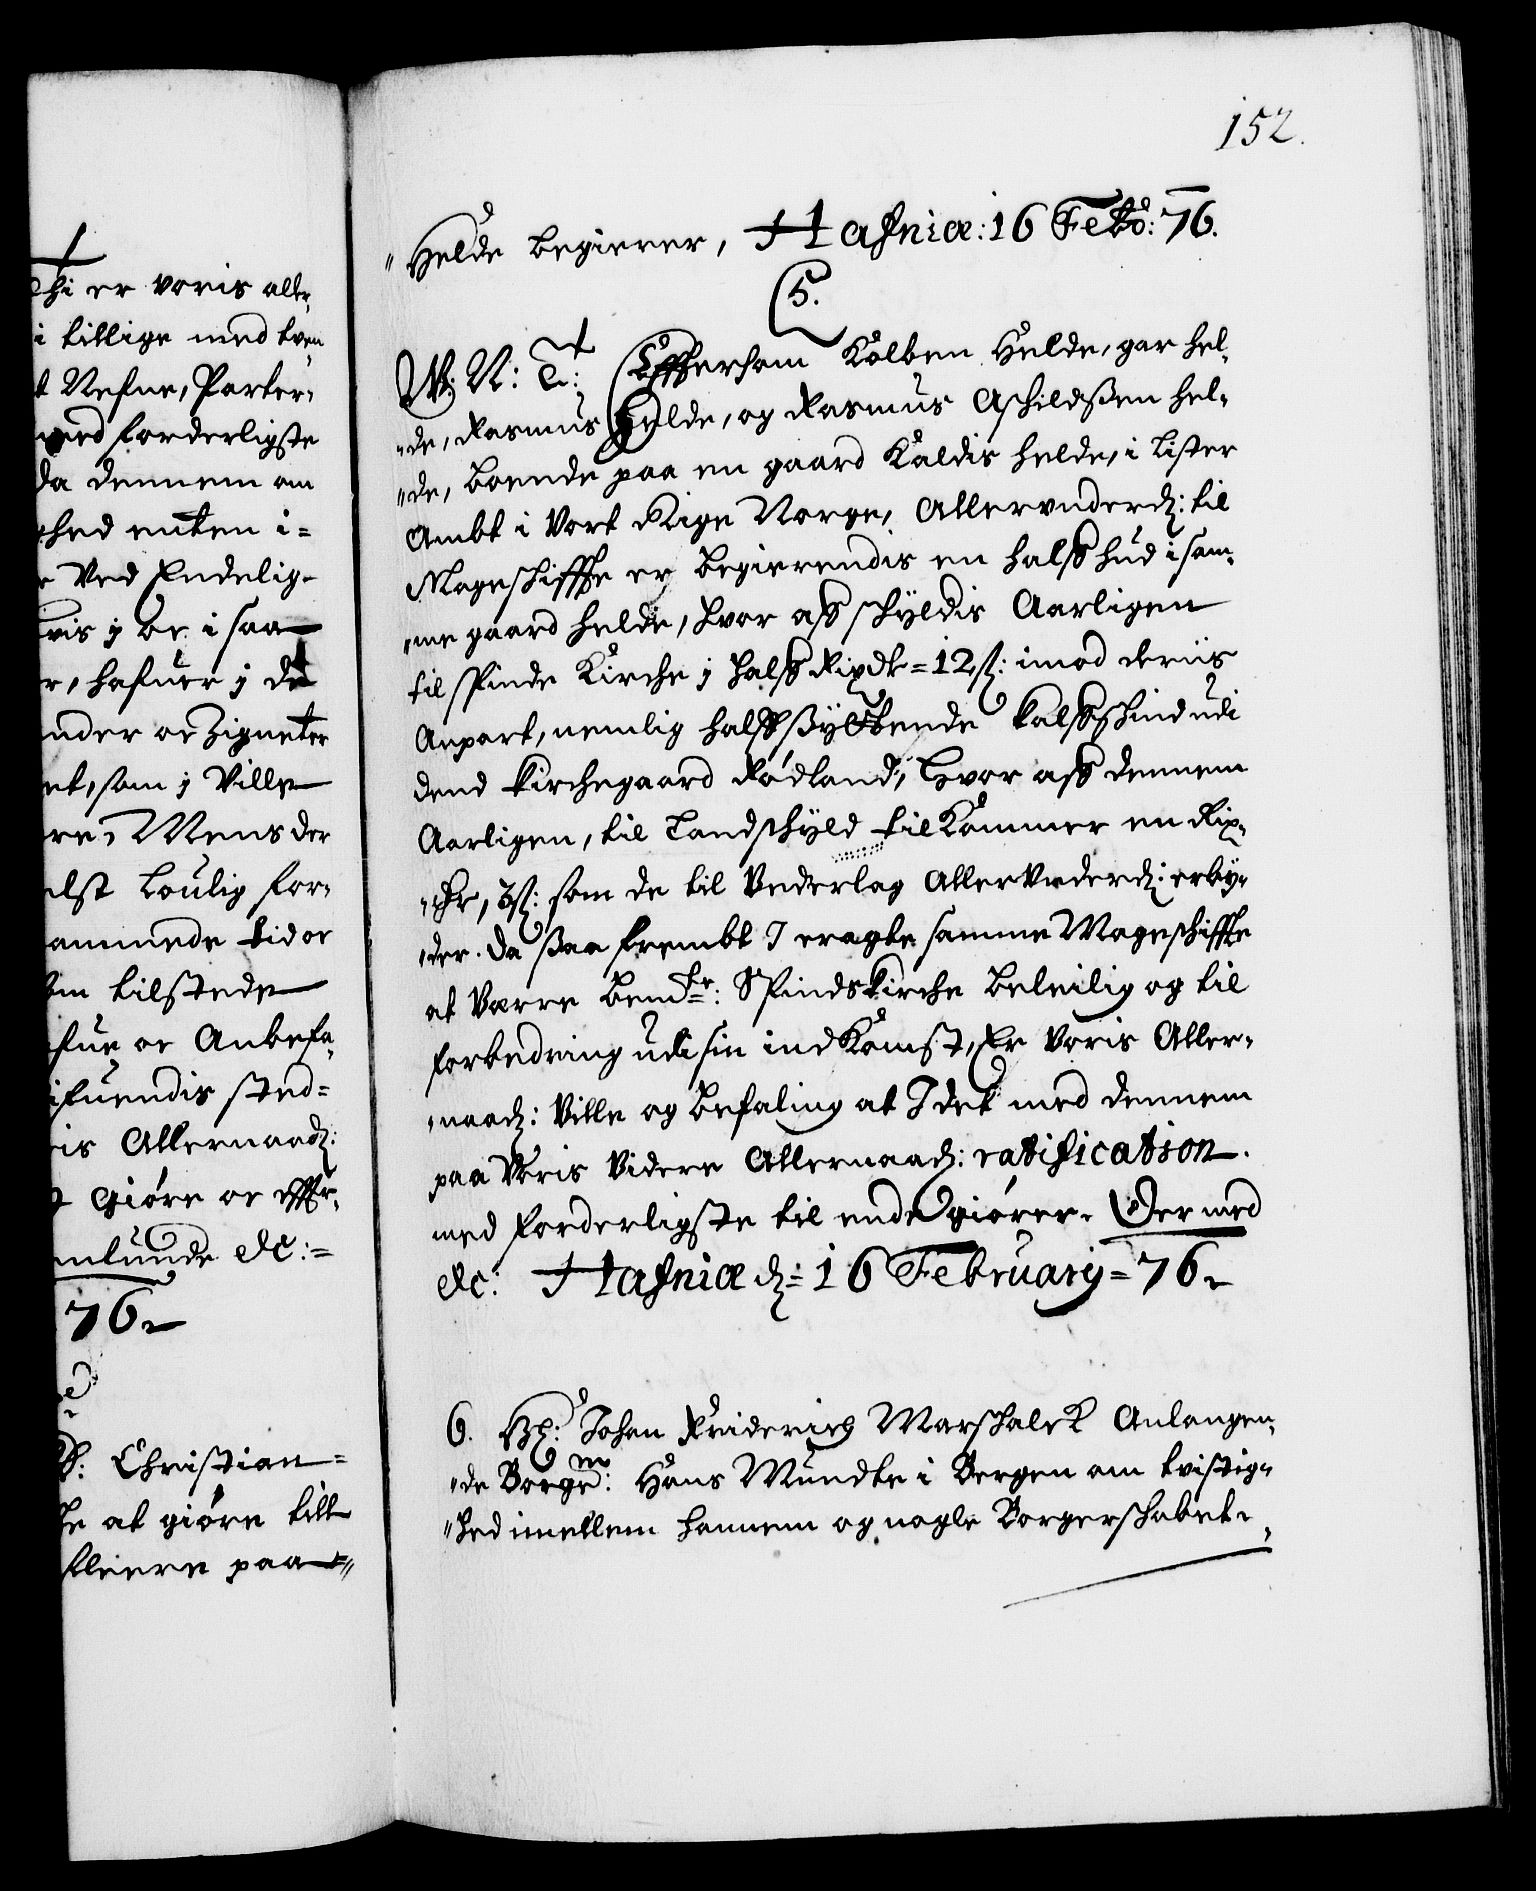 152.
"Helde begierer, Hafniæ: 16 Febr: 76.
5.
W: N: T: Effthersom Kolben Helde, gar hel-
"de, Rasmus Helde, og Rasmus Aschildsßen hel-
"de, boende paa en gaard Kaldis helde, i Lister
Ambt i Vort Rige Norge, Allervnderd: til
Mageschiffte er begierendis en halff hud i sam-
"me gaard helde, hvor aff schyldis Aarligen
til Spinde Kirche j halff Rixdr = 12 ß: imod deriis
Anpart, nemlig halffsyttende kalffschind udi
dend kirchegaard Rødland, Hvor aff dennem
Aarligen, til Landschyld tilkommer en Rix-
"dr, 3 ß: som de til Vederlag Allervnderd: erby-
"der. Da saa frembt I eragte samme Mageschiffte
at Værre bemte: Spindskirche beleilig og til
forbedring udi sin indkomst, Er Voris Aller-
"naad: Ville og befaling at I det med dennem
paa Voris Videre Allernaad: ratification
med forderligste til ende giører. Dermed
etc: Hafniæ d = 16 February = 76
6. Johan Friderich Marschalck Anlangen-
"de Borgem: Hans Mundte i Bergen om tvistig-
"hed imellem hannem og nogle Borgerschabet
Thi er voris aller-
i tillige med tven
Nefne, Parter-
med forderligste
da dennem om
hed enten i-
Ved Endelig-
vis j br. i saa
r, hafuer j de
under oc Zigneter
et, som j Ville
re, Mens der
elst louilig for-
ammede tid oc
om tilstede
fue oc Anbefa-
ifuendis sted-
is Allernaad:
giøre oc effter-
mlunde etc: =
76
Christian =
he at giøre till
fleere paa